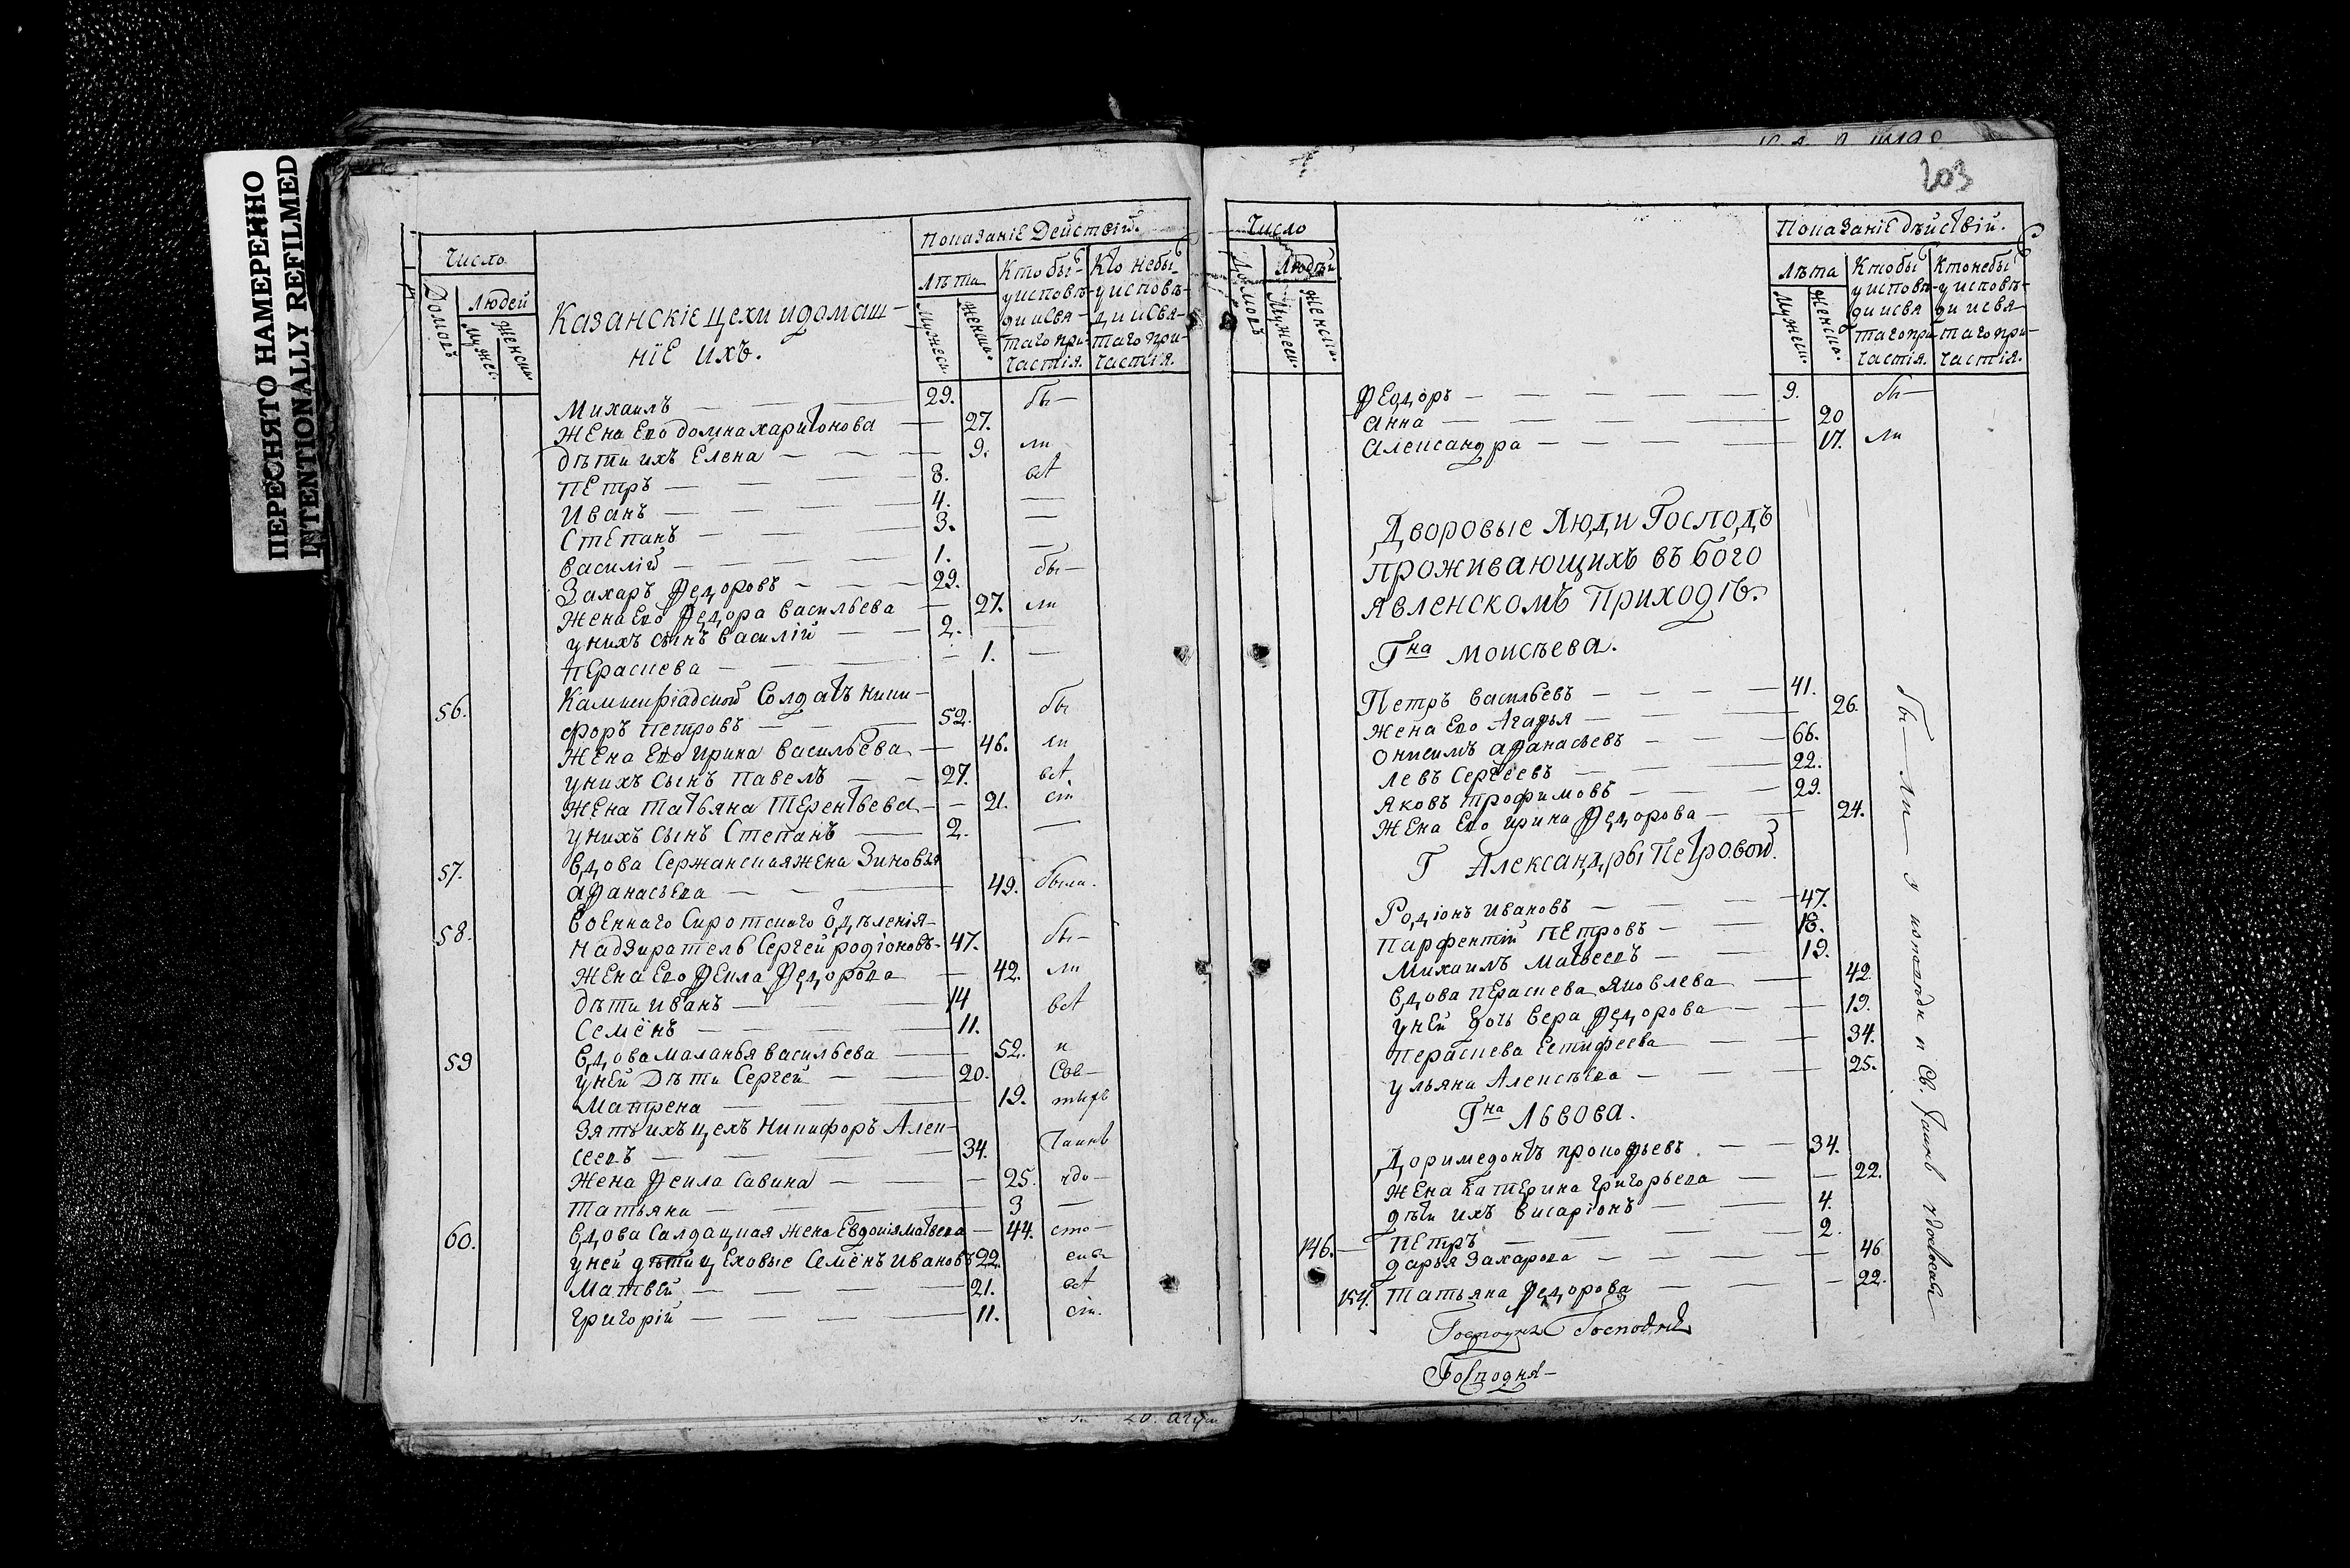 ПЕРЕСНЯТО НАМЕРЕННО
INTENTIONALLY REFILMED
Число
Домовъ
Людей
Мужес.
Женска.
Казанскіе цехи и домаш-
ніе ихъ.
Показаніе Действій.
Лѣта
Мужеск.
Женска.
Кто бы-
у исповѣ-
ди и Свя-
таго при-
частія.
Кто не бы
у исповѣ-
ди и Свя-
таго при-
частія.
Михаилъ — 29. бы—
Жена Его домна харитонова — 27.
дѣти ихъ Елена — 9. ли
Петръ — 8. всѣ
Иванъ — 4. —
Степанъ — 3. —
Василій — 1. —
Захаръ Федоровъ — 29. бы—
Жена Его Федора Васильева — 27. ли
у нихъ сынъ Василій — 2. —
Параскева — 1. —
56. Солдатъ Ники-
форъ Петровъ — 52. бы
Жена Его Ирина Васильева — 46. ли
у нихъ Сынъ Павелъ — 27. всѣ
Жена Татьяна Терентьева — 21.
у нихъ сынъ Степанъ — 2. —
57. Вдова Сержанская жена Зиновья
Афанасьева — 49. была.
58. Военнаго Сиротскаго Отдѣленія
Надзиратель Сергей родіоновъ — 47. бы—
Жена Его Фекла Федорова — 42. ли
Дѣти Иванъ — 14 всѣ
Семёнъ — 11.
59 Вдова Маланья Васильева — 52. и
у ней Дѣти Сергей — 20.
Матрена — 19.
Зять ихъ цехъ Никифоръ Алек-
сеевъ — 34.
Жена Фекла Савина — 25.
Татьяна — 3 —
60. Вдова Салдацкая жена Евдокія Матвева — 44.
у ней дѣти цеховые Семёнъ Ивановъ 22.
Матвей — 21. всѣ
Григорій — 11.
203
Число
Домовъ
Людей
Мужеск.
Женска.
Показаніе дѣйствій.
Лѣта
Мужеск.
Женска.
Кто бы
у исповѣ-
ди и свя
таго при-
частія.
Кто небы
у исповѣ-
ди и свя-
таго при-
частія.
Федоръ — 9. бы—
Анна — 20
Александра — 17. ли
Дворовые Люди Господъ
проживающихъ въ Бого
явленскомъ Приходѣ.
Гна Моисѣева.
Петръ Васильевъ — 41.
Жена Его Агафья — 26.
Онисимъ Афанасьевъ — 66.
Левъ Сергѣевъ — 22.
Яковъ Трофимовъ — 29.
Жена Его Ирина Федорова — 24.
Г Александры Петровой.
Родіонъ Ивановъ — 47.
Парфентій Петровъ — 18.
Михаилъ Матвеевъ — 19.
Вдова Параскева Яковлева — 42.
у ней дочь Вера Федорова — 19.
Параскева Евтифеева — 34.
Ульяна Алексѣева — 25.
Гна Львова.
Доримедонтъ прокофьевъ — 34.
Жена Катерина Григорьева — 22.
дѣти ихъ Висаріонъ — 4.
Петръ — 2.
146. Дарья Захарова — 46
154. Татьяна Федорова — 22.
Господня Господня
Господня—